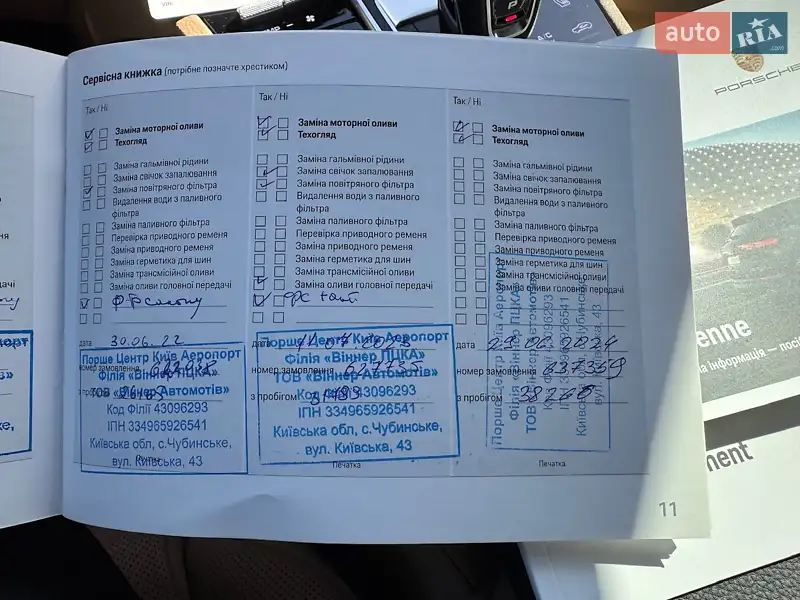 auto RIA .com
PORSCHE
Сервісна книжка (потрібне позначте хрестиком)
Так / Ні
Заміна моторної оливи
Техогляд
Заміна гальмівної рідини
Заміна свічок запалювання
Заміна повітряного фільтра
Видалення води з паливного
фільтра
Заміна паливного фільтра
Перевірка приводного ременя
Заміна приводного ременя
Заміна герметика для шин
Заміна трансмісійної оливи
Заміна оливи головної передачі
дата 30.06.22
номер замовлення
з пробігом
Порше Центр Київ Аеропорт
Філія «Віннер ПЦКА»
ТОВ «Віннер Автомотів»
Код Філії 43096293
ІПН 334965926541
Київська обл, с.Чубинське,
вул. Київська, 43
Так / Ні
Заміна моторної оливи
Техогляд
Заміна гальмівної рідини
Заміна свічок запалювання
Заміна повітряного фільтра
Видалення води з паливного
фільтра
Заміна паливного фільтра
Перевірка приводного ременя
Заміна приводного ременя
Заміна герметика для шин
Заміна трансмісійної оливи
Заміна оливи головної передачі
дата 11.07.2023
номер замовлення 627735
з пробігом
Порше Центр Київ Аеропорт
Філія «Віннер ПЦКА»
ТОВ «Віннер Автомотів»
Код Філії 43096293
ІПН 334965926541
Київська обл, с.Чубинське,
вул. Київська, 43
Печатка
Так / Ні
Заміна моторної оливи
Техогляд
Заміна гальмівної рідини
Заміна свічок запалювання
Заміна повітряного фільтра
Видалення води з паливного
фільтра
Заміна паливного фільтра
Перевірка приводного ременя
Заміна приводного ременя
Заміна герметика для шин
Заміна трансмісійної оливи
Заміна оливи головної передачі
дата
номер замовлення 637359
з пробігом 38260
Порше Центр Київ Аеропорт
Філія «Віннер ПЦКА»
ТОВ «Віннер Автомотів»
Код Філії 43096293
ІПН 334965926541
Київська обл, с.Чубинське,
вул. Київська, 43
Печатка
11
enne
на Інформація — посі
ment